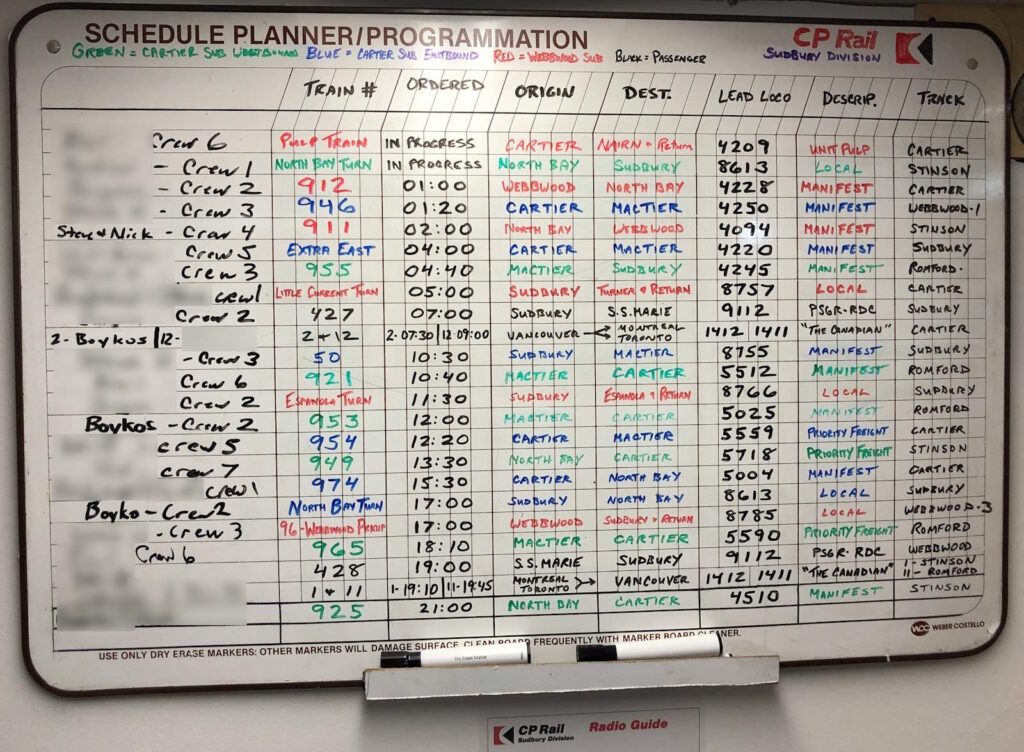 SCHEDULE PLANNER/PROGRAMMATION
CP Rail
GREEN = CARTIER SUB WESTBOUND BLUE = CARTIER SUB EASTBOUND RED = WEBBWOOD SUB BLACK = PASSENGER SUDBURY DIVISION
TRAIN # ORDERED ORIGIN DEST. LEAD LOCO DESCRIP. TRACK
Crew 6 PULP TRAIN IN PROGRESS CARTIER NAIRN & Return 4209 UNIT PULP CARTIER
- Crew 1 NORTH BAY TURN IN PROGRESS NORTH BAY SUDBURY 8613 LOCAL STINSON
- Crew 2 912 01:00 WEBBWOOD NORTH BAY 4228 MANIFEST CARTIER
- Crew 3 946 01:20 CARTIER MACTIER 4250 MANIFEST WEBBWOOD-1
Steve & Nick - Crew 4 911 02:00 NORTH BAY WEBBWOOD 4094 MANIFEST STINSON
Crew 5 EXTRA EAST 04:00 CARTIER MACTIER 4220 MANIFEST SUDBURY
Crew 3 955 04:40 MACTIER SUDBURY 4245 MANIFEST ROMFORD.
crew1 LITTLE CURRENT TURN 05:00 SUDBURY TURNER & RETURN 8757 LOCAL CARTIER
Crew 2 427 07:00 SUDBURY S.S.MARIE 9112 PSGR-RDC SUDBURY
2- Boykos | 12- 2 & 12 2-07:30 | 12-09:00 VANCOUVER MONTREAL TORONTO 1412 | 1411 "THE CANADIAN" CARTIER
- Crew 3 50 10:30 SUDBURY MACTIER 8755 MANIFEST SUDBURY
Crew 6 921 10:40 MACTIER CARTIER 5512 MANIFEST ROMFORD
Crew 2 ESPANOLA TURN 11:30 SUDBURY ESPANOLA & RETURN 8766 LOCAL SUDBURY
Boykos - Crew 2 953 12:00 MACTIER CARTIER 5025 MANIFEST ROMFORD
crew 5 954 12:20 CARTIER MACTIER 5559 PRIORITY FREIGHT CARTIER
crew 7 949 13:30 NORTH BAY CARTIER 5718 PRIORITY FREIGHT STINSON
crew1 974 15:30 CARTIER NORTH BAY 5004 MANIFEST CARTIER
Boyko - Crew 2 NORTH BAY TURN 17:00 SUDBURY NORTH BAY 8613 LOCAL SUDBURY
- Crew 3 96-WEBBWOOD PICKUP 17:00 WEBBWOOD SUDBURY & RETURN 8785 LOCAL WEBBWOOD-3
Crew 6 965 18:10 MACTIER CARTIER 5590 PRIORITY FREIGHT ROMFORD
428 19:00 S.S. MARIE SUDBURY 9112 PSGR-RDC WEBBWOOD
1 & 11 1-19:10 | 11-19:45 MONTREAL TORONTO VANCOUVER 1412 | 1411 "THE CANADIAN" 1-STINSON 11-ROMFORD
925 21:00 NORTH BAY CARTIER 4510 MANIFEST STINSON
WCC WEBER COSTELLO
USE ONLY DRY ERASE MARKERS: OTHER MARKERS WILL DAMAGE SURFACE. CLEAN BOARD FREQUENTLY WITH MARKER BOARD CLEANER.
Dry Erase Marker
CP Rail Radio Guide
Sudbury Division